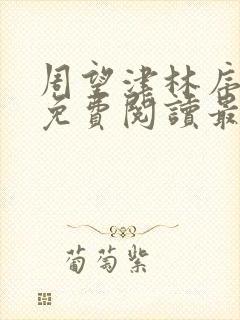 周望津林
免費閱讀最
葡萄紫